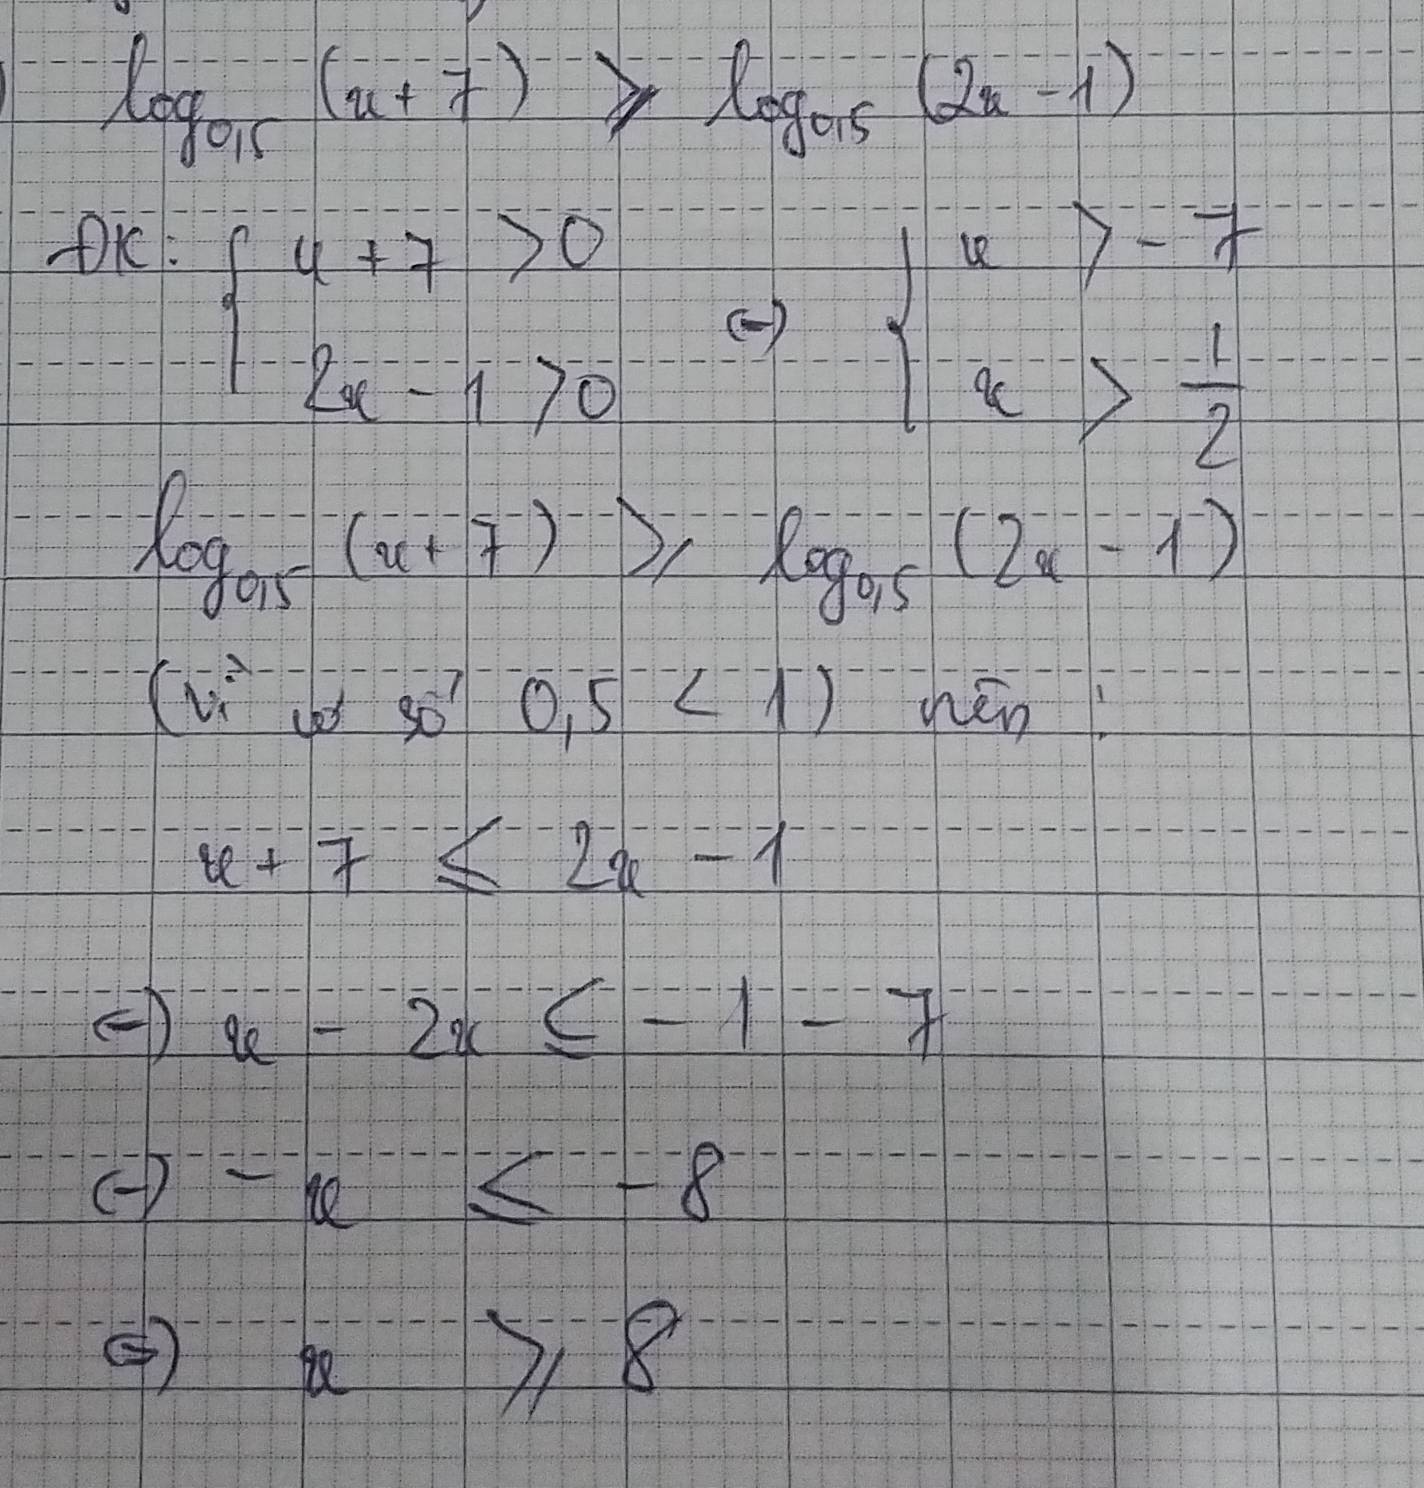 log₀,₅ (x + 7) ≥ log₀,₅ (2x - 1)
ĐK: { x + 7 > 0 ⇔ { x > -7
2x - 1 > 0 x > 1/2
log₀,₅ (x + 7) ≥ log₀,₅ (2x - 1)
(vì cơ số 0,5 < 1) nên :
x + 7 ≤ 2x - 1
⇔ x - 2x ≤ -1 - 7
⇔ -x ≤ -8
⇔ x ≥ 8